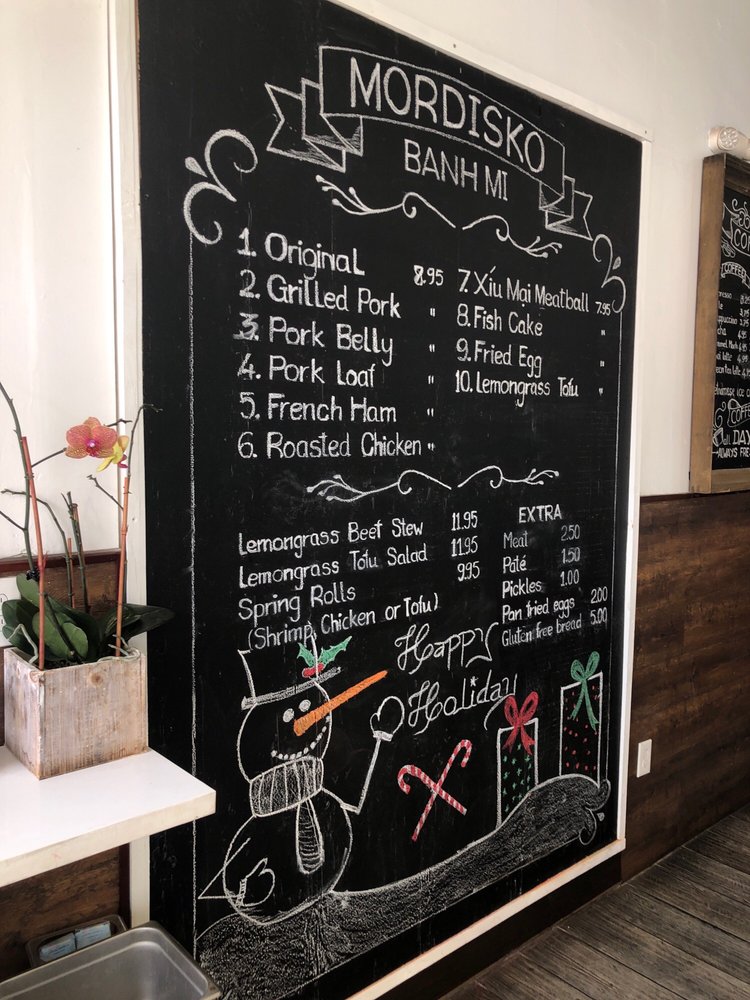 MORDISKO
BANH MI
1. Original 8.95
2. Grilled Pork "
3. Pork Belly "
4. Pork Loaf "
5. French Ham "
6. Roasted Chicken "
7. Xíu Mại Meatball 7.95
8. Fish Cake "
9. Fried Egg "
10. Lemongrass Tofu "
Lemongrass Beef Stew 11.95
Lemongrass Tofu Salad 11.95
Spring Rolls 9.95
(Shrimp, Chicken or Tofu)
EXTRA
Meat 2.50
Pâté 1.50
Pickles 1.00
Pan fried eggs 2.00
Gluten free bread 5.00
Happy
Holiday
COFFEE
DAY
ALWAYS FRE